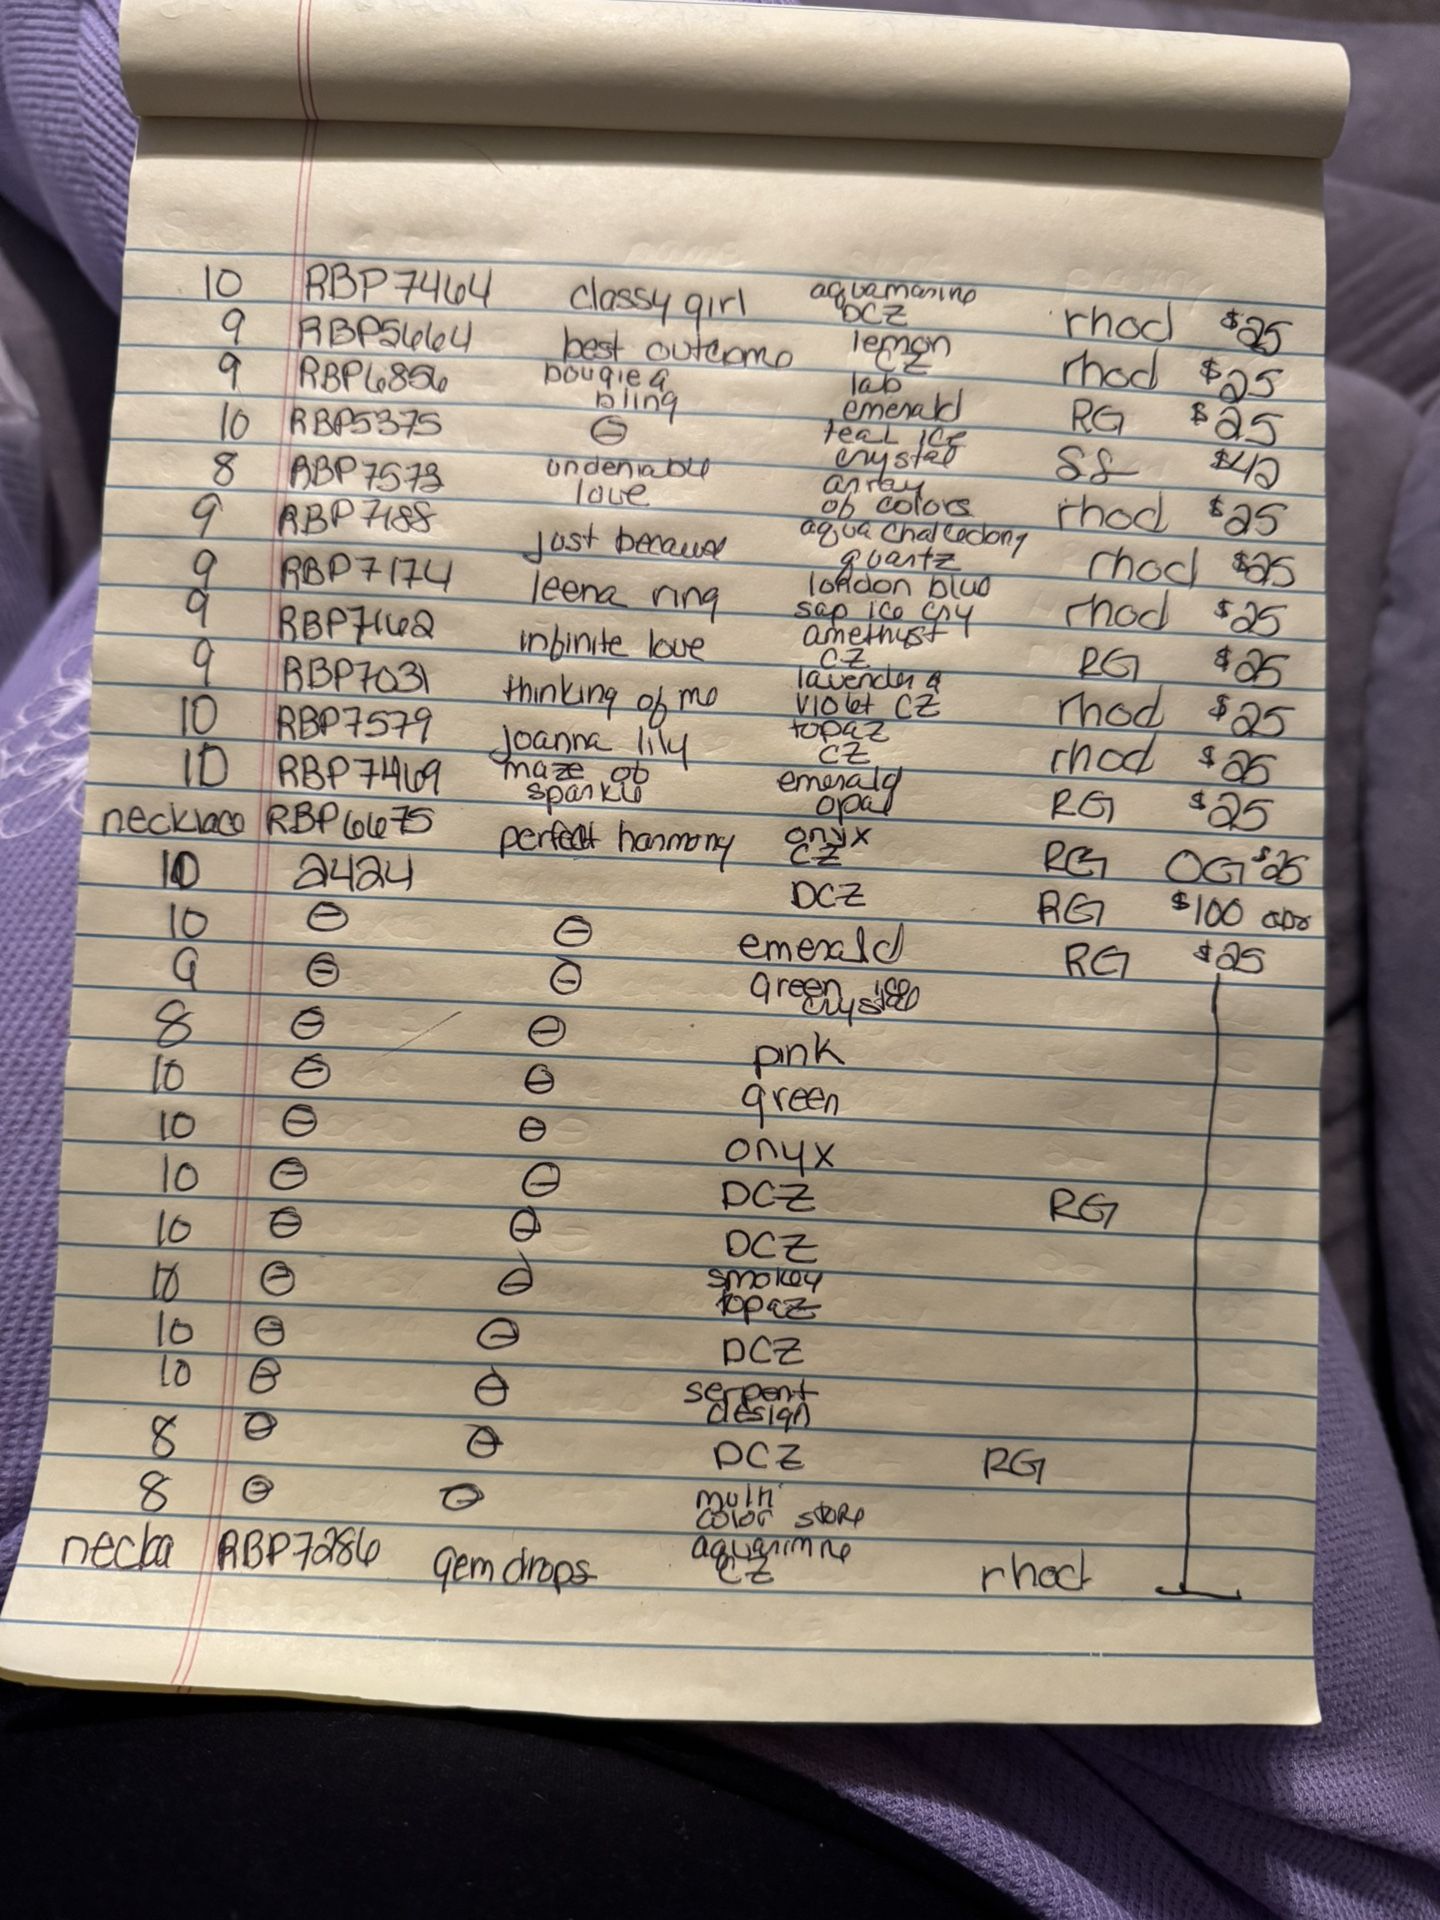 10 RBP7464 classy girl aquamarine DCZ rhod $25
9 RBP5664 best outcome lemon CZ rhod $25
9 RBP6856 bougie & bling lab emerald RG $25
10 RBP5375 ⊖ teal ice crystal SS $42
8 RBP7573 undeniable love array of colors rhod $25
9 RBP7188 just because aqua chalcedony quartz rhod $25
9 RBP7174 leena ring london blue sap ice cry rhod $25
9 RBP7162 infinite love amethyst CZ RG $25
9 RBP7031 thinking of me lavender & violet CZ rhod $25
10 RBP7579 joanna lily topaz CZ rhod $25
10 RBP7469 maze of sparkle emerald opal RG $25
necklace RBP6675 perfect harmony onyx CZ RG OG $25
10 2424 DCZ RG $100
10 ⊖ ⊖ emerald RG $25
9 ⊖ ⊖ green crystal
8 ⊖ ⊖ pink
10 ⊖ ⊖ green
10 ⊖ ⊖ onyx
10 ⊖ ⊖ DCZ RG
10 ⊖ ⊖ DCZ
10 ⊖ ⊖ smokey topaz
10 ⊖ ⊖ DCZ
10 ⊖ ⊖ serpent design
8 ⊖ ⊖ DCZ RG
8 ⊖ ⊖ multi color stone
RBP7286 gem drops CZ rhod